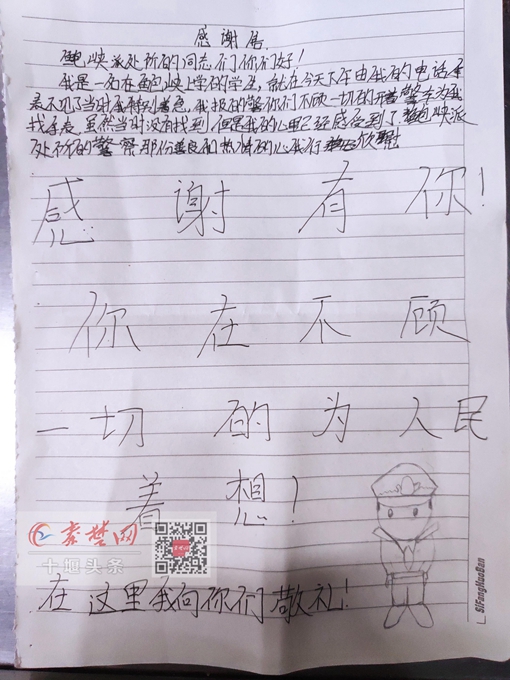 感谢居
快派处所的同志们你们好！
我是一名在西快上学的学生，就在今天下午由我的电话手
表不见了当时我特别着急，我报的警你们不顾一切的开着警车为我
找手表，虽然当时没有找到但是我的心里已经感受到了快派
处所的警察那份善良和热情的心我行欣慰
感谢有你！
你在不顾
一切的为人民
着想！
在这里我向你们敬礼！
秦楚网
十堰头条
SiFangHaoBan